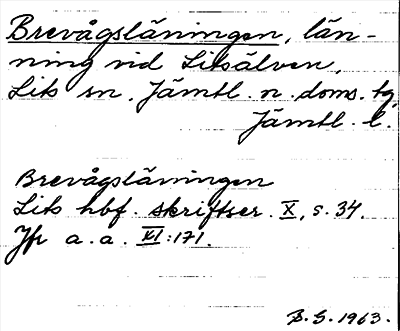 Brevågsläningen, län-
ning vid Litsälven,
Lits sn. Jämtl. n. doms. tg
Jämtl. l.
Brevågsläningen
Lits hbf. skriftser. X, s. 34.
Jfr a.a. XI:171.
B.S. 1963.